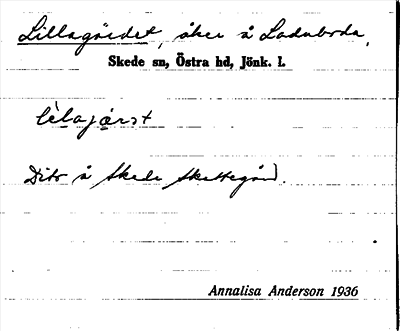 Lillagärdet, åker å Laduboda,
Skede sn, Östra hd, Jönk. l.
Dito å Skede Skattegård.
Annalisa Anderson 1936